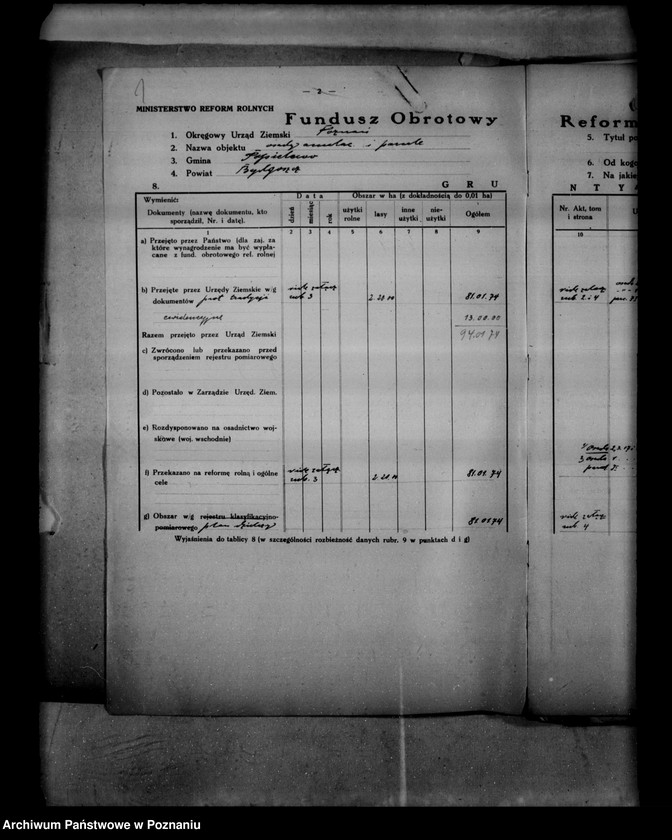 - 2 -
MINISTERSTWO REFORM ROLNYCH
Fundusz Obrotowy
1. Okręgowy Urząd Ziemski Poznań
2. Nazwa objektu i parcele
3. Gmina
4. Powiat Bydgoszcz
8. G R U
Wymienić:
Dokumenty (nazwę dokumentu, kto sporządził, Nr. i datę).
Data
dzień
miesiąc
rok
Obszar w ha (z dokładnością do 0,01 ha)
użytki rolne
lasy
inne użytki
nieużytki
Ogółem
1 2 3 4 5 6 7 8 9
a) Przejęto przez Państwo (dla zaj. za
które wynagrodzenie ma być wypłacane
z fund. obrotowego ref. rolnej
b) Przejęte przez Urzędy Ziemskie w/g
dokumentów
rub. 3 2.20.00 81.01.74
ewidencyjne 13.00.00
Razem przejęto przez Urząd Ziemski 94.01.74
c) Zwrócono lub przekazano przed
sporządzeniem rejestru pomiarowego
d) Pozostało w Zarządzie Urzęd. Ziem.
e) Rozdysponowano na osadnictwo wojskowe
(woj. wschodnie)
f) Przekazano na reformę rolną i ogólne
cele
rub. 3 2.20.00 81.01.74
g) Obszar w/g rejestru klasyfikacyjno-
pomiarowego 81.01.74
Wyjaśnienia do tablicy 8 (w szczególności rozbieżność danych rubr. 9 w punktach d i g)
Reform
5. Tytuł po
6. Od kogo
7. Na jakie
N T Y
Nr. Akt, tom
i strona
10
rub. 2 i 4
rub 4
Archiwum Państwowe w Poznaniu